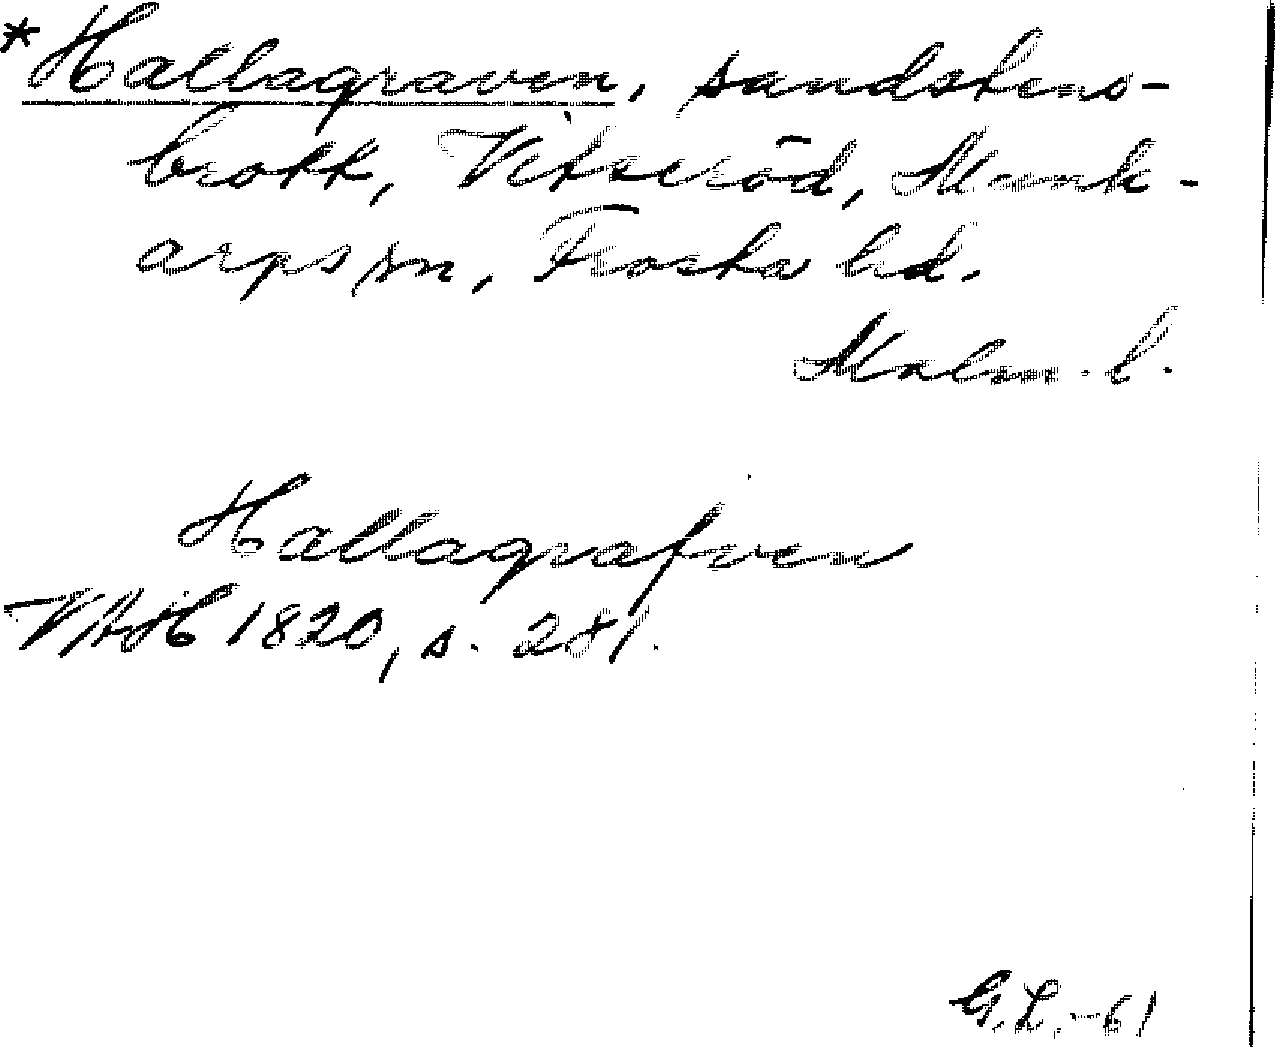 *Hallagraven, sandstens-
brott, Vitseröd, Munk-
arps sn, Frosta hd.
Malm. l.
Hallagrafven
VAH 1820, s. 281.
G.L.-61